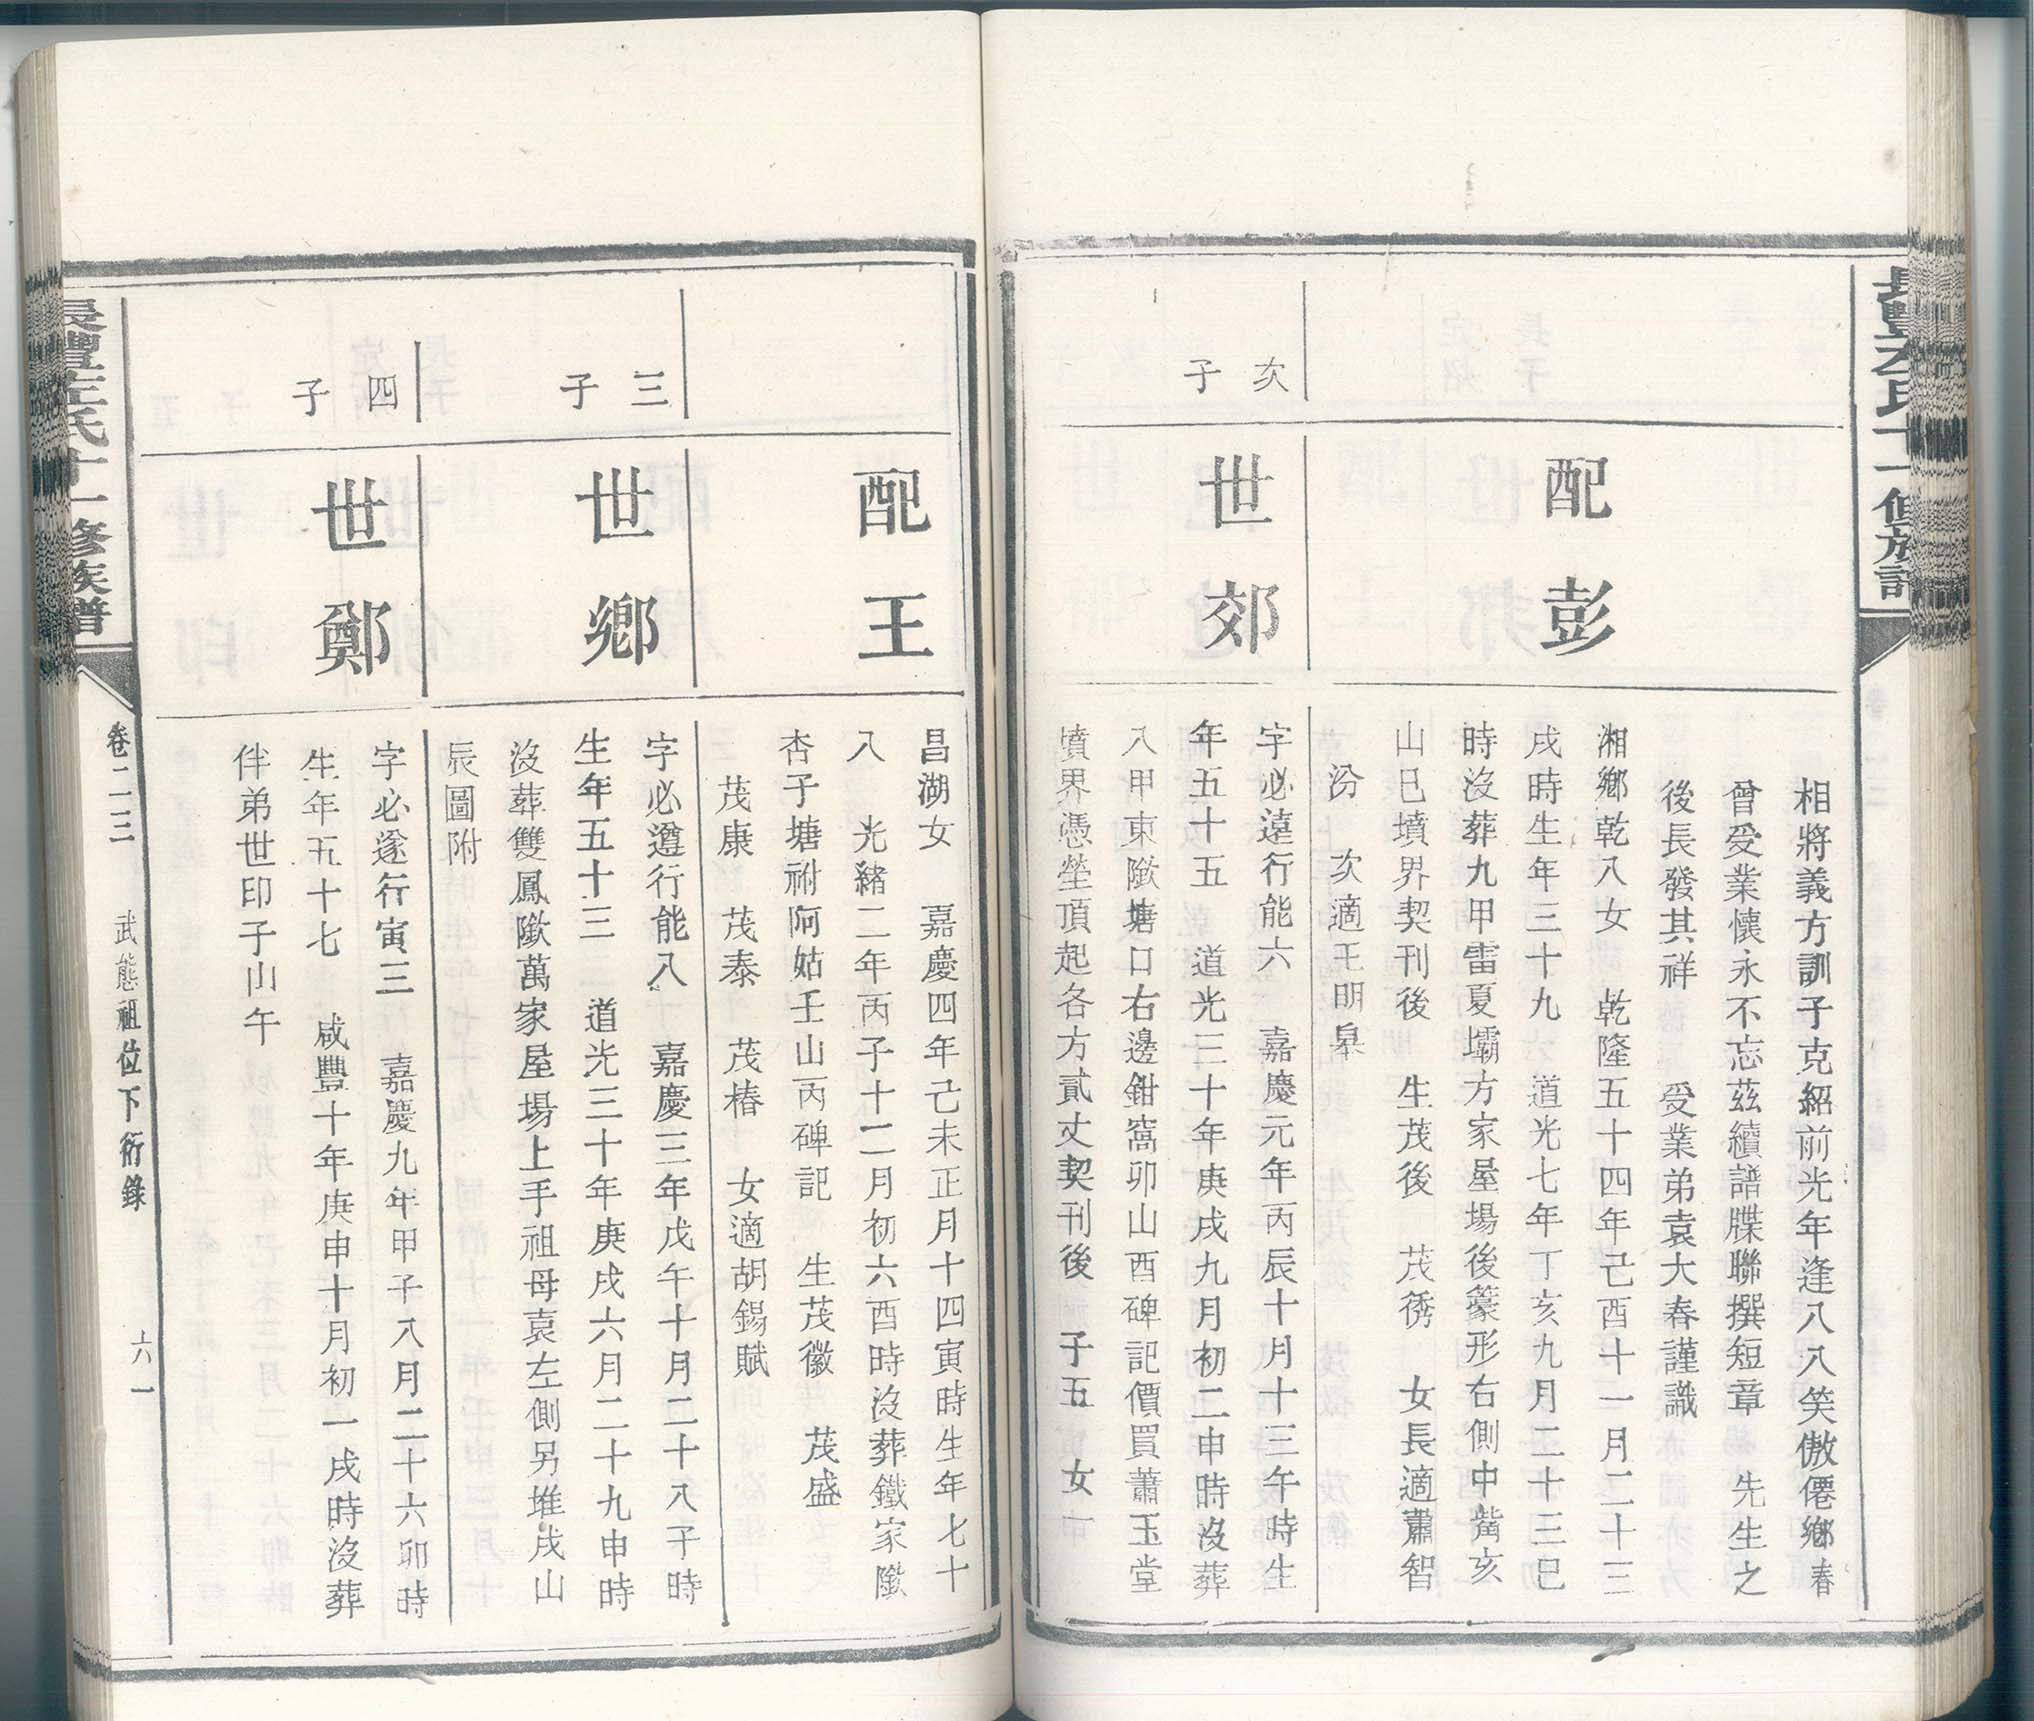 長豐左氏十一修族譜
相將義方訓子克紹前光年逢八八笑傲僊鄉春
曾受業懐永不忘茲續譜牒聯撰短章　先生之
後長發其祥　受業弟袁大春謹識
配彭
湘鄉乾八女　乾隆五十四年己酉十一月二十三
戌時生年三十九　道光七年丁亥九月二十三巳
時沒葬九甲雷夏壩方家屋場後篆形右側中觜亥
山巳墳界契刊後　生茂後　茂琇　女長適蕭智
汾　次適王明皋
次子
世郊
字必遠行能六　嘉慶元年丙辰十月十三午時生
年五十五　道光三十年庚戌九月初二申時沒葬
八甲東隞塘口右邊鉗窩卯山酉碑記價買蕭玉堂
墳界憑塋頂起各方貳丈契刊後　子五　女一
配王
昌湖女　嘉慶四年己未正月十四寅時生年七十
八　光緒二年丙子十二月初六酉時沒葬鐵家隞
杏子塘祔阿姑壬山丙碑記　生茂徽　茂盛
茂康　茂泰　茂椿　女適胡錫賦
三子
世鄉
字必遵行能八　嘉慶三年戊午十月二十八子時
生年五十三　道光三十年庚戌六月二十九申時
沒葬雙鳳隞萬家屋場上手祖母袁左側另堆戌山
辰圖附
四子
世鄭
字必遂行寅三　嘉慶九年甲子八月二十六卯時
生年五十七　咸豐十年庚申十月初一戌時沒葬
伴弟世印子山午
長豐左氏十一修族譜
卷二三
武態祖位下衍錄
六一